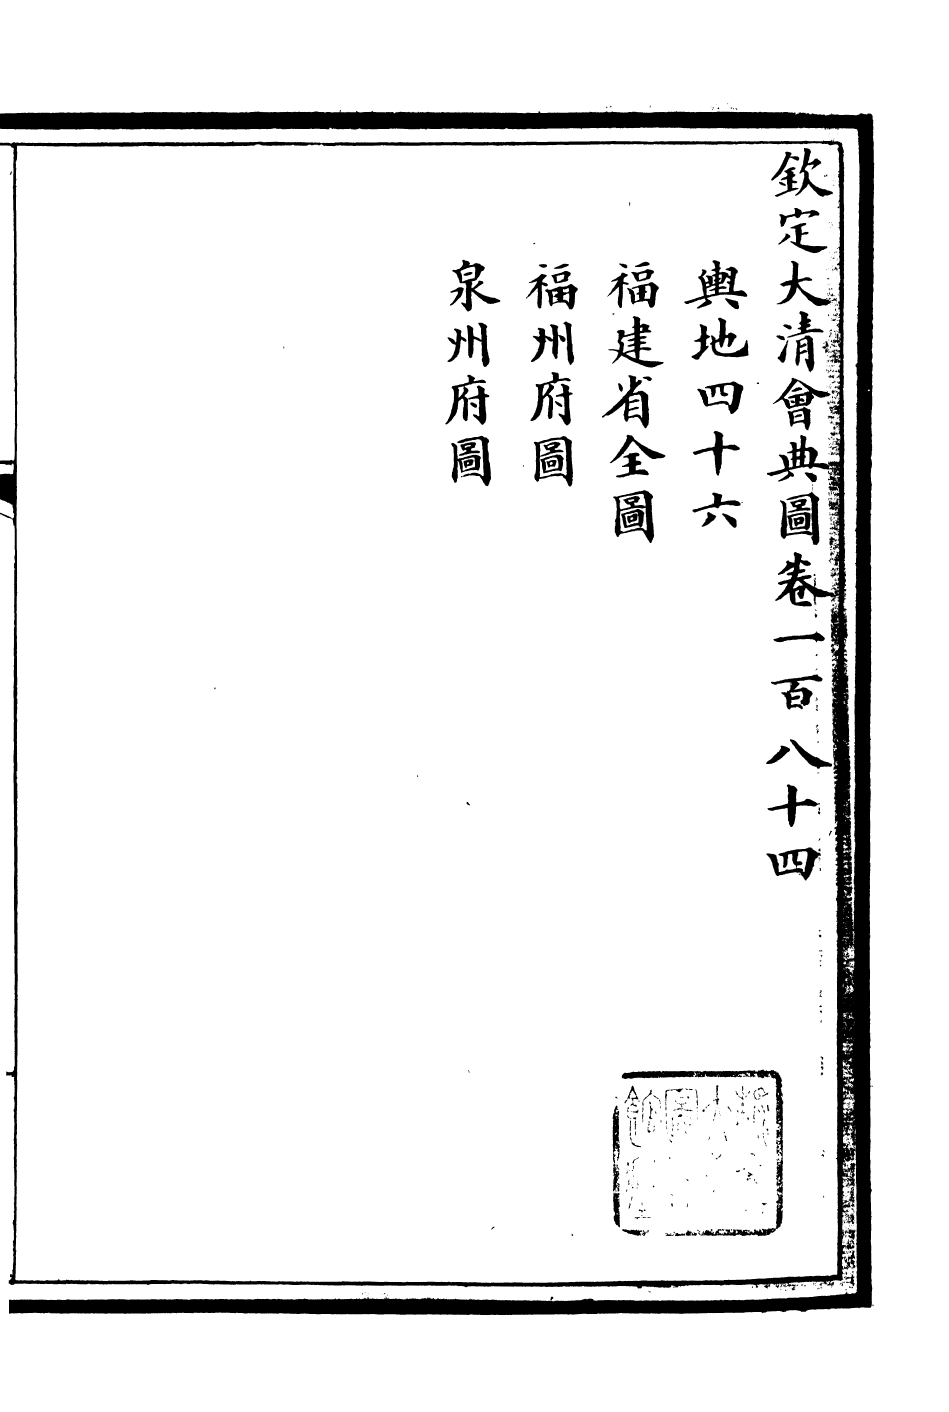 欽定大清會典圖卷一百八十四
輿地四十六
福建省全圖
福州府圖
泉州府圖